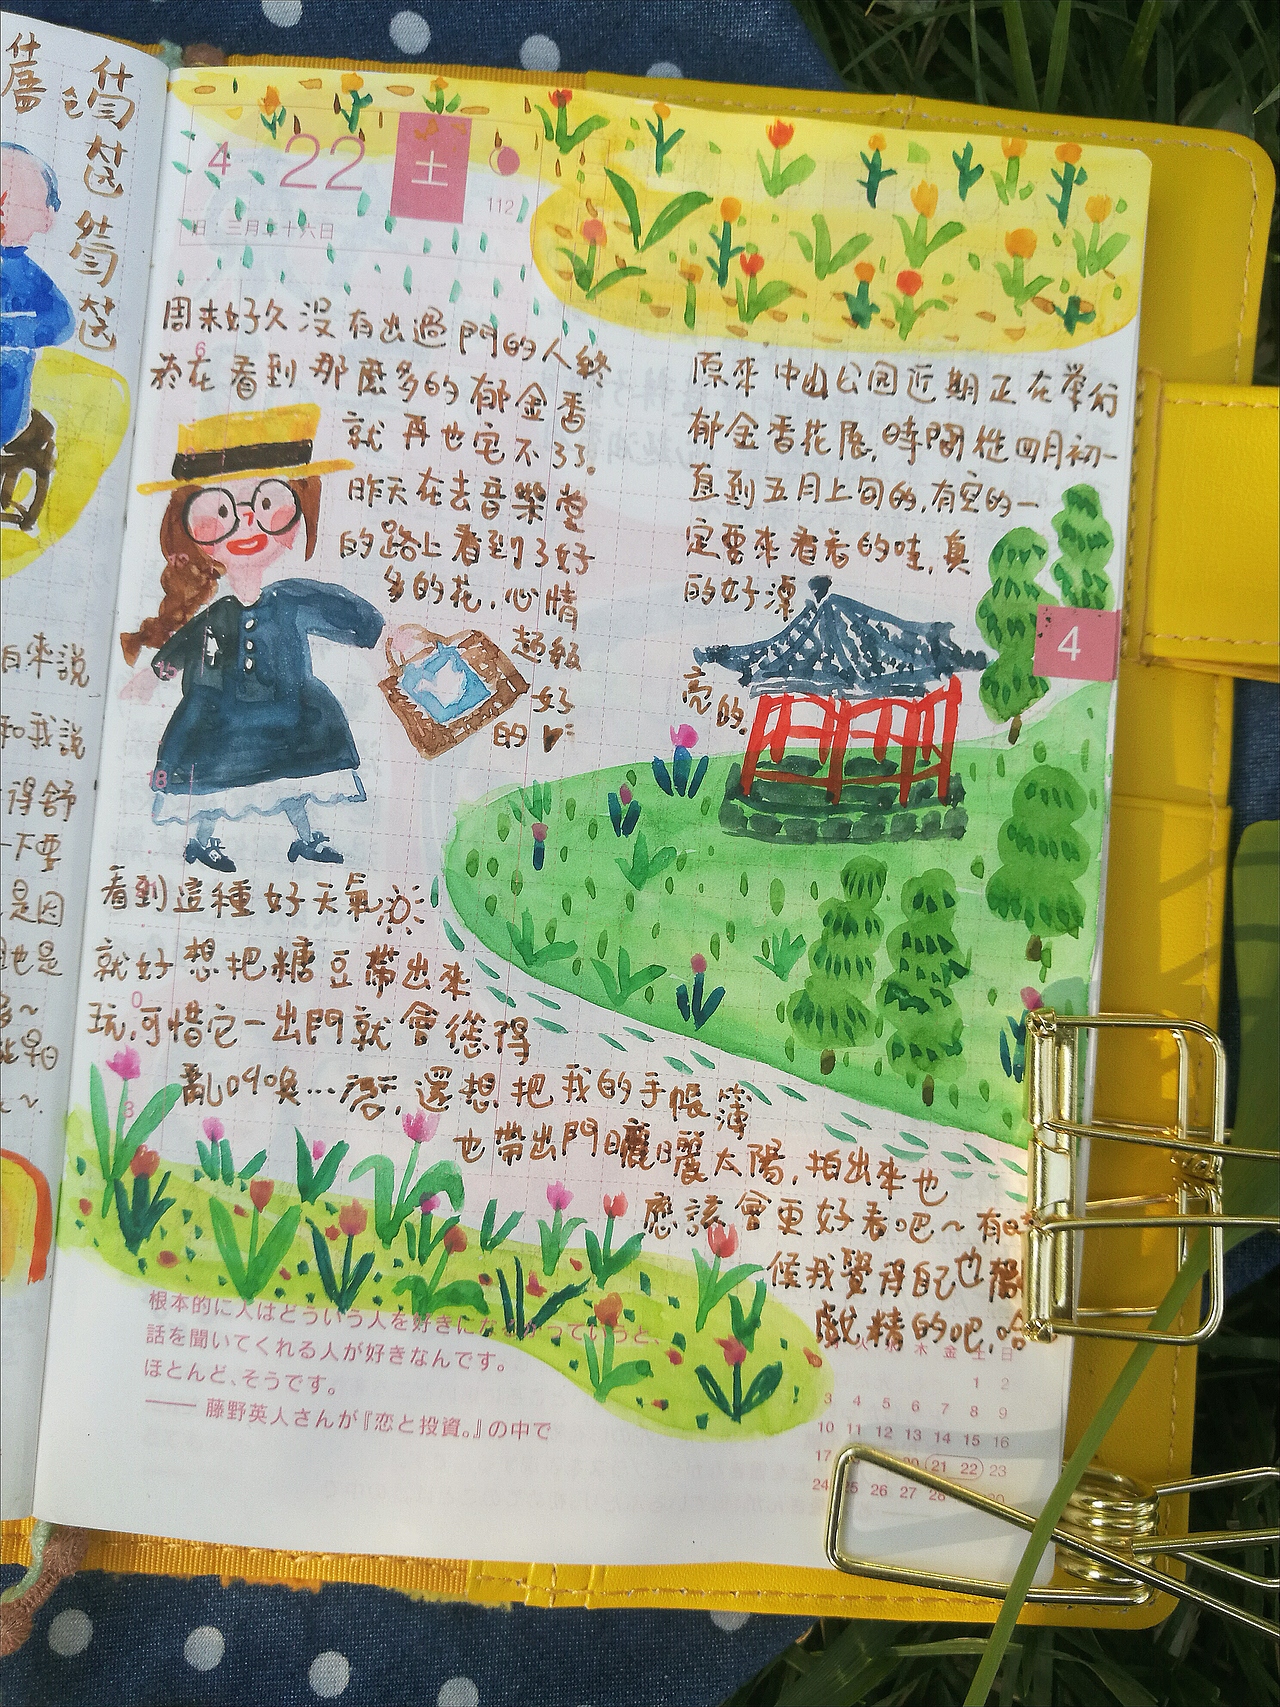 什
唇
什
麼
4 22 土
112
旧:三月二十六日
周末好久没有出過門的人終
於在看到那麽多的郁金香
就再也宅不了了。
昨天在去音樂堂
的路上看到了好
多的花,心情
超級
好
的
原來中山公园近期正在举行
郁金香花展,時間從四月初一
直到五月上旬的,有空的一
定要來看看的哇,真
的好漂
亮的。
4
看到這種好天氣
就好想把糖豆帶出來
玩,可惜它一出門就會
亂叫喚…唇,還想把我的手帳簿
也帶出門曬曬太陽,拍出來也
應該會更好看吧~有時
候我覺得自己也
戲精的吧,哈
6
18
0
3
白來說
和我說
得舒
一下要
是因
也是
根本的に人はどういう人を好きになるかっていうと、
話を聞いてくれる人が好きなんです。
ほとんど、そうです。
—— 藤野英人さんが『恋と投資。』の中で
木 金 土 日
1 2
3 4 5 6 7 8 9
10 11 12 13 14 15 16
17 20 21 22 23
24 25 26 27 28 30